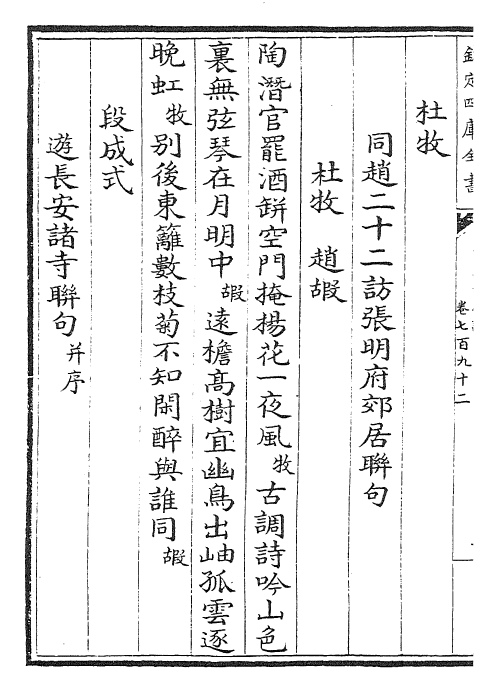 欽定四庫全書
卷七百九十二
杜牧
同趙二十二訪張明府郊居聯句
杜牧　趙嘏
陶潛官罷酒缾空門掩楊花一夜風牧古調詩吟山色
裏無弦琴在月明中嘏遠檐高樹宜幽鳥出岫孤雲逐
晚虹牧別後東籬數枝菊不知閑醉與誰同嘏
段成式
遊長安諸寺聯句并序